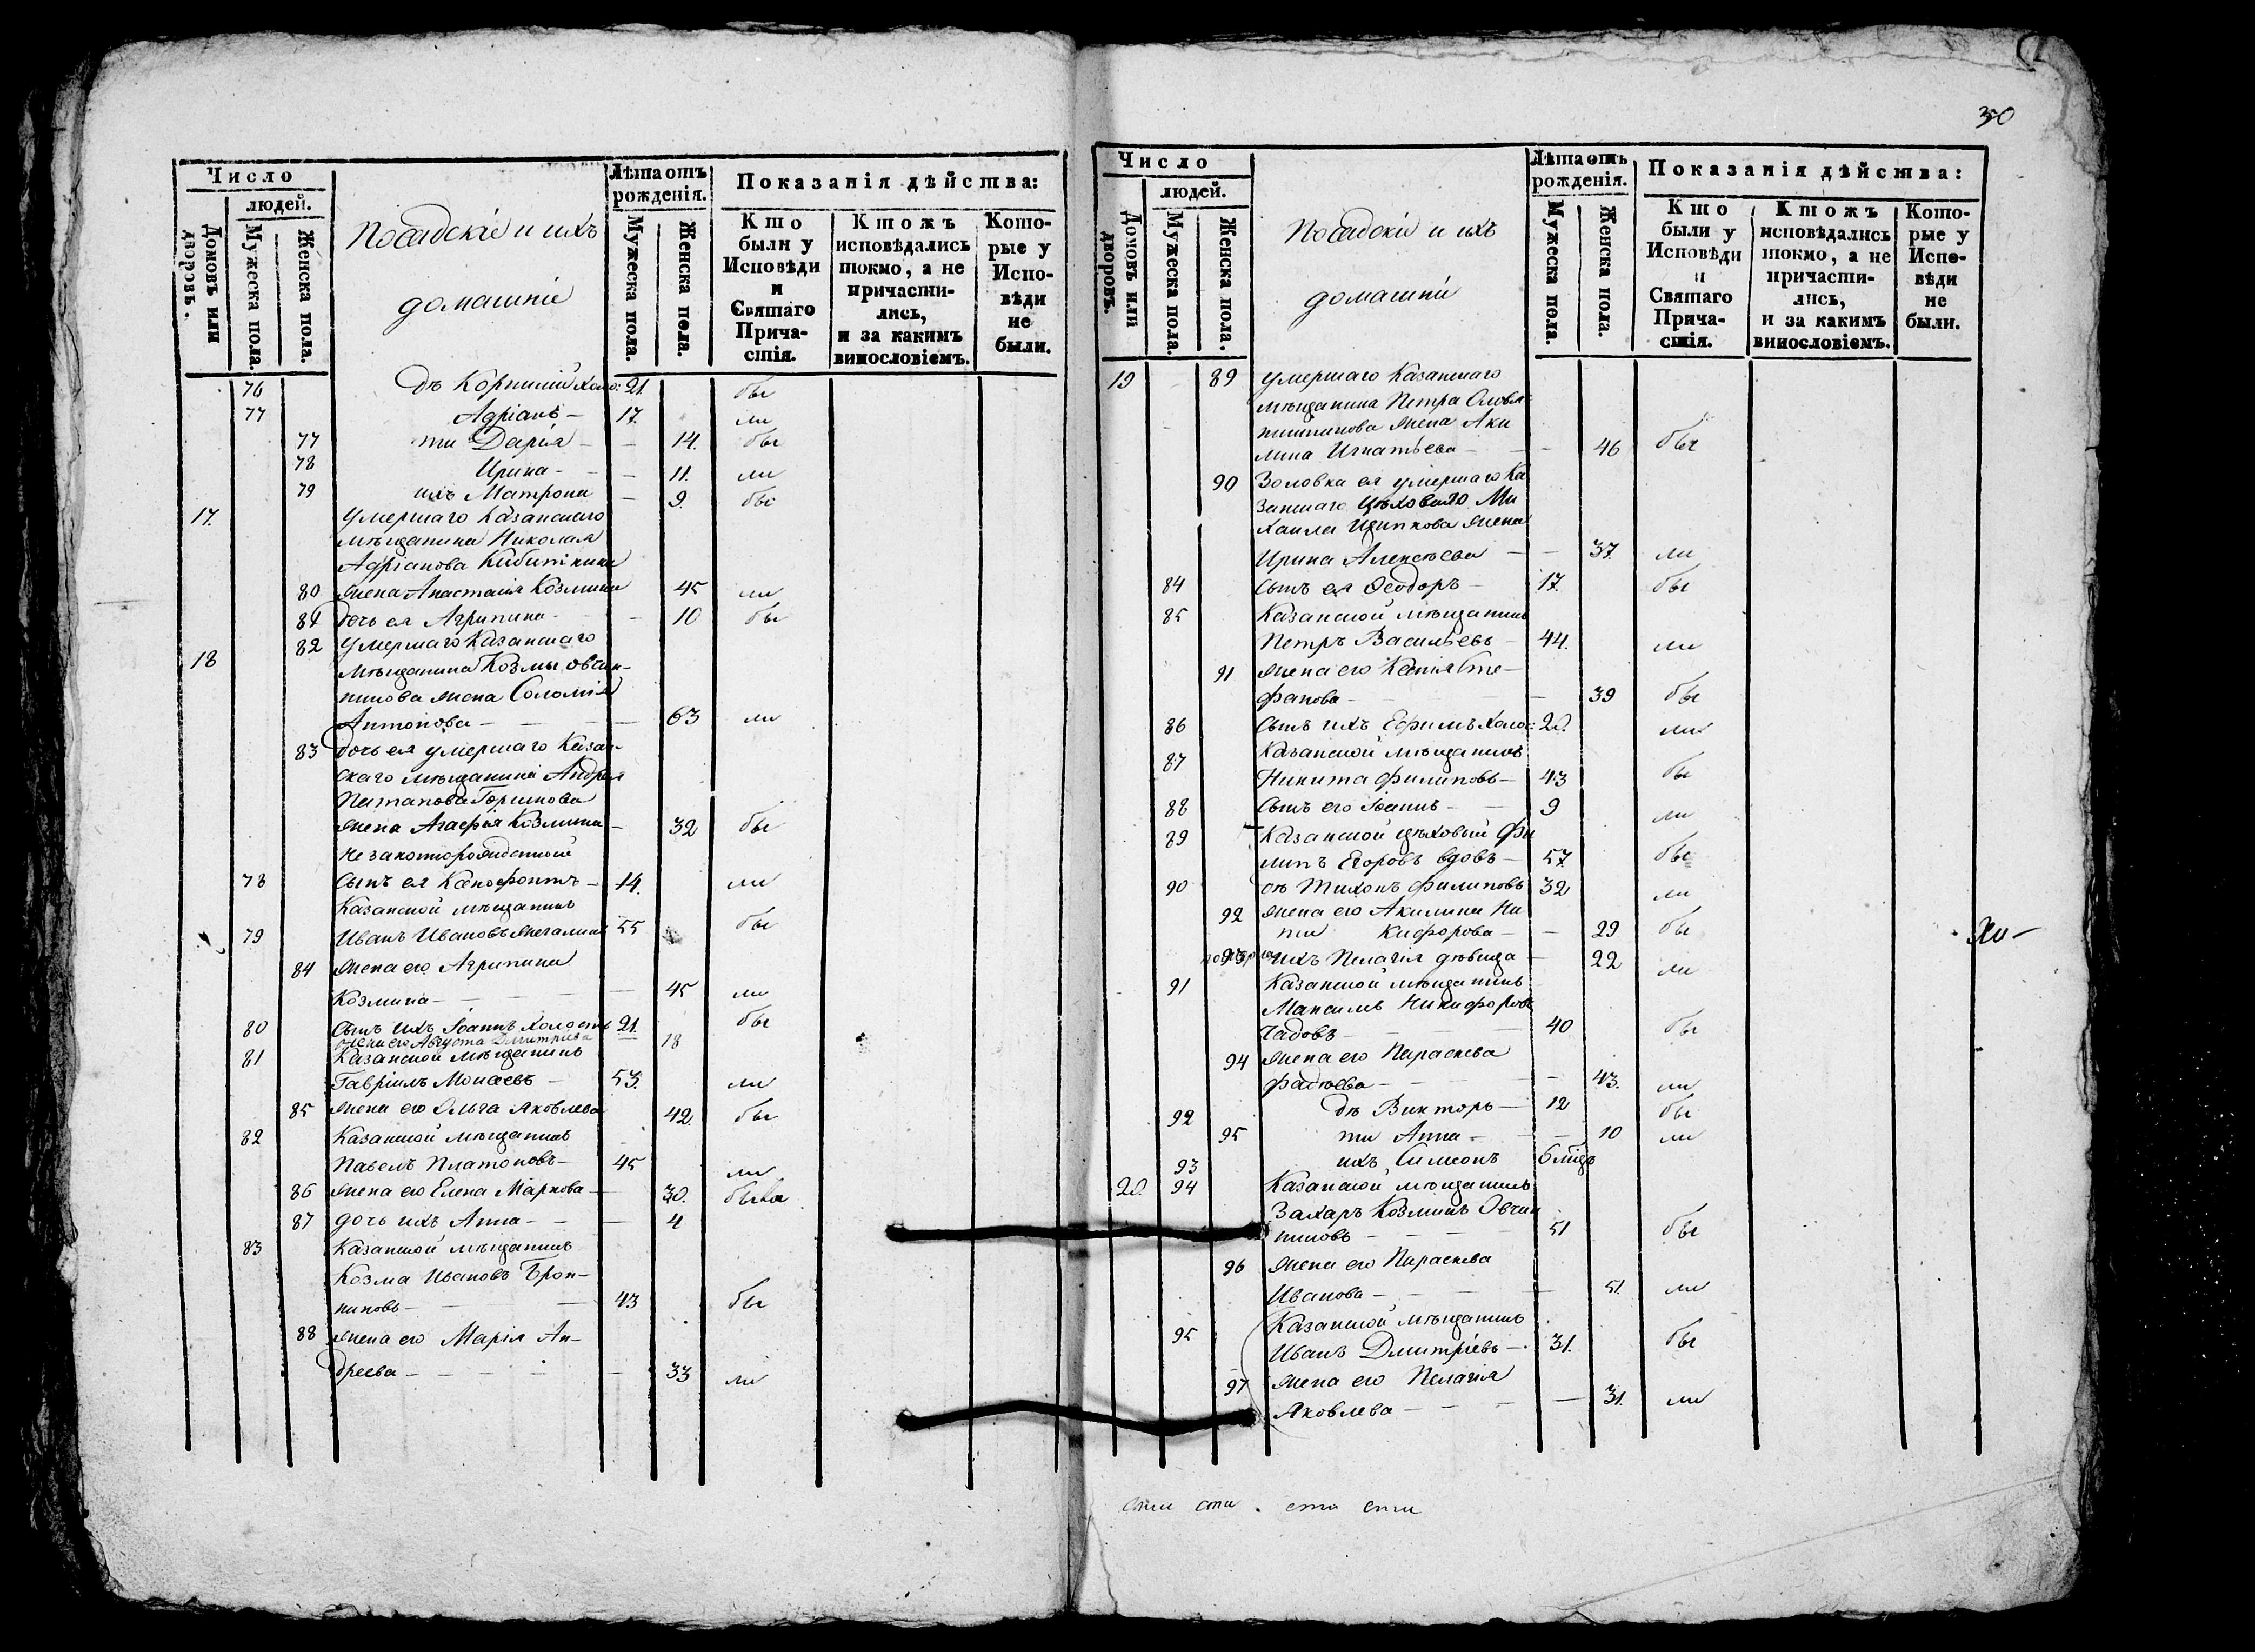 Число
людей.
Домовъ или дворовъ.
Мужеска пола.
Женска пола.
Посадскіе и ихъ
домашніе
Лѣта отъ
рожденія.
Мужеска пола.
Женска пола.
Показанія дѣйства:
Кто
были у
Исповѣди
и
Святаго
Прича-
стія.
Ктожъ
исповѣдались
токмо, а не
причасти-
лись,
и за какимъ
винословіемъ.
Кото-
рые у
Испо-
вѣди
не
были.
76 дѣ Корнилій холо: 21. бы
77 Адріанъ — 17. ли
77 ти Дарія — 14. бы
78 Ирина — 11. ли
79 ихъ Матрона — 9. бы
17. Умершаго Казанскаго
мѣщанина Николая
Адріанова Кибиткина
80 жена Анастасія Козмина 45 ли
81 дочь ея Агрипина — 10 бы
82 Умершаго Казанскаго
18 мѣщанина Козмы Овчин-
никова жена Соломія
Антонова — 63 ли
83 дочь ея умершаго Казан-
скаго мѣщанина Андрея
Потапова Горшкова
жена Агафья Козмина — 32 бы
Незаконнорожденной
78 сынъ ея Ксенофонтъ — 14. ли
Казанской мѣщанинъ
79 Иванъ Ивановъ Жегалинъ 55 бы
84 жена его Агрипина
Козмина — 45 ли
80 сынъ ихъ Іоаннъ холостъ 21. бы
жена его Августа Дмитріева 18
81 Казанской мѣщанинъ
Гавріилъ Моисеевъ — 53. ли
85 жена его Ольга Яковлева 42. бы
82 Казанской мѣщанинъ
Павелъ Платоновъ — 45 ли
86 жена его Елена Маркова — 30. была
87 дочь ихъ Анна — 4
83 Казанской мѣщанинъ
Козма Ивановъ Брон-
никовъ — 43 бы
88 жена его Марія Ан-
дреева — 33 ли
30
Число
людей.
Домовъ или дворовъ.
Мужеска пола.
Женска пола.
Посадскіе и ихъ
домашніе
Лѣта отъ
рожденія.
Мужеска пола.
Женска пола.
Показанія дѣйства:
Кто
были у
Исповѣди
и
Святаго
Прича-
стія.
Ктожъ
исповѣдались
токмо, а не
причасти-
лись,
и за какимъ
винословіемъ.
Кото-
рые у
Испо-
вѣди
не
были.
19 89 умершаго Казанскаго
мѣщанина Петра
жена Аки
лина Игнатьева — 46 бы
90 Золовка ея умершаго Ка
занскаго цѣховаго Ми
хаила Щипкова жена
Ирина Алексѣева — 37. ли
84 сынъ ея Ѳеодоръ — 17. бы
85 Казанской мѣщанинъ
Петръ Васильевъ — 44. ли
91 жена его Ксенія Сте-
фанова — 39 бы
86 сынъ ихъ Ефимъ холос: 20. ли
87 Казанской мѣщанинъ
Никита Филиповъ — 43 бы
88 сынъ его Іоаннъ — 9 ли
89 Казанской цѣховый Фи
липъ Егоровъ вдовъ — 57. бы
90 дѣ Тихонъ Филиповъ 32 ли
92 жена его Акилина Ни
ти кифорова — 29 бы
93 ихъ Пелагія дѣвица — 22 ли
91 Казанской мѣщанинъ
Максимъ Никифоровъ
Чадовъ — 40 бы
94 жена его Параскева
Фадѣева — 43. ли
92 дѣ Викторъ — 12 бы
95 ти Анна — 10 ли
93 ихъ Симеонъ 6 мѣцъ
20. 94 Казанской мѣщанинъ
Захаръ Козминъ Овчин
никовъ — 51 бы
96 жена его Параскева
Иванова — 51. ли
95 Казанской мѣщанинъ
Иванъ Дмитріевъ — 31. бы
97 жена его Пелагія
Яковлева — 31. ли
сти сти . сти сти